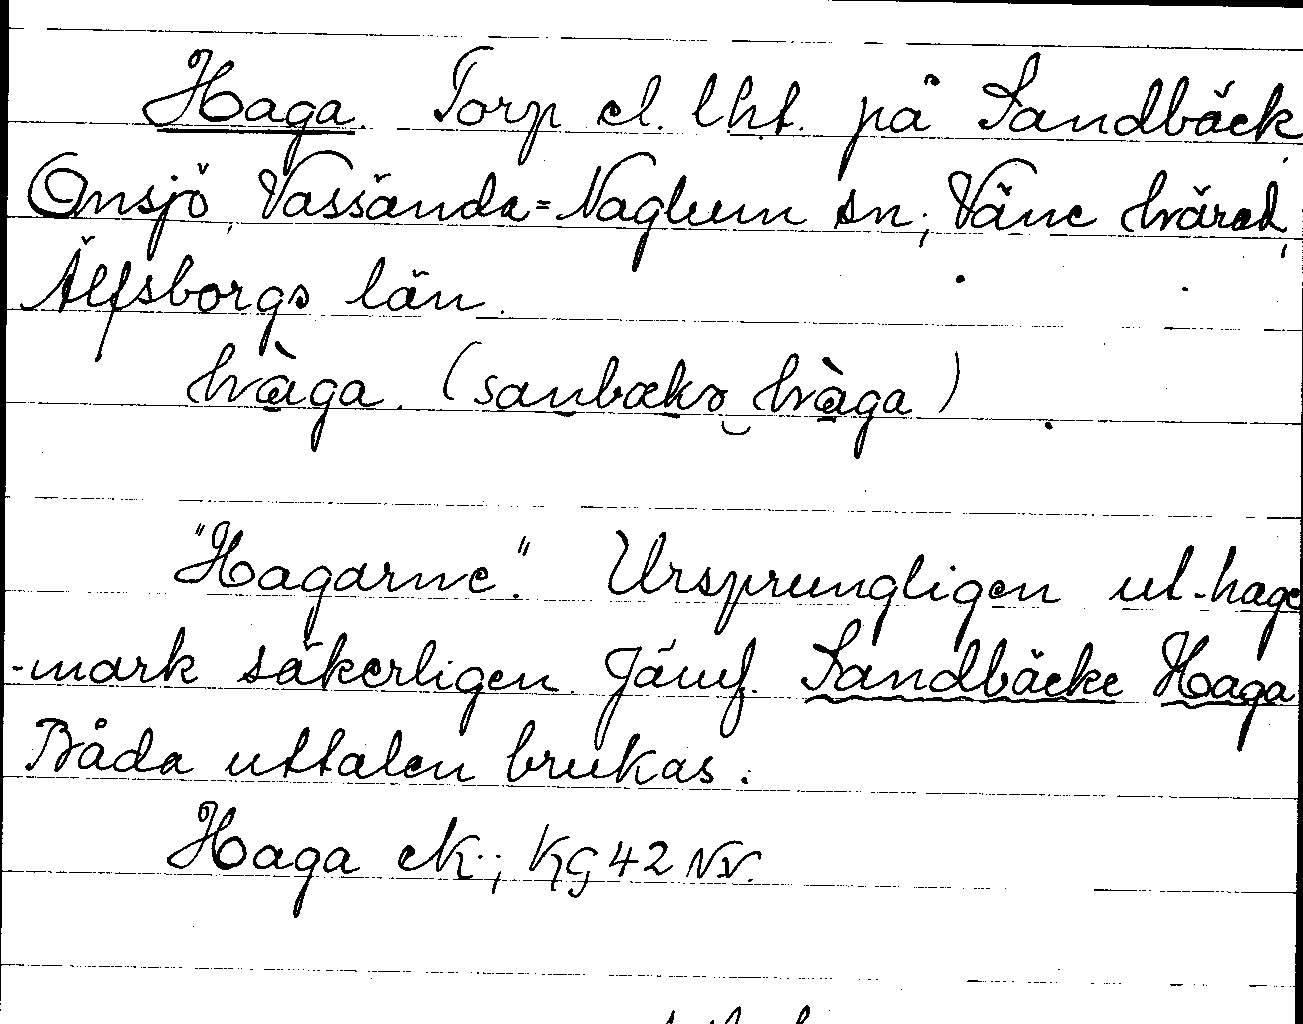 Haga. Torp el. lht. på Sandbäck
Onsjö, Vassända=Naglum sn; Väne härad,
Älfsborgs län.
hàga. (sanbækə hàga)
"Hagarne". Ursprungligen ut-hage
-mark säkerligen. Jämf. Sandbäcke Haga
Båda uttalen brukas.
Haga ek.; KG 42 NV.